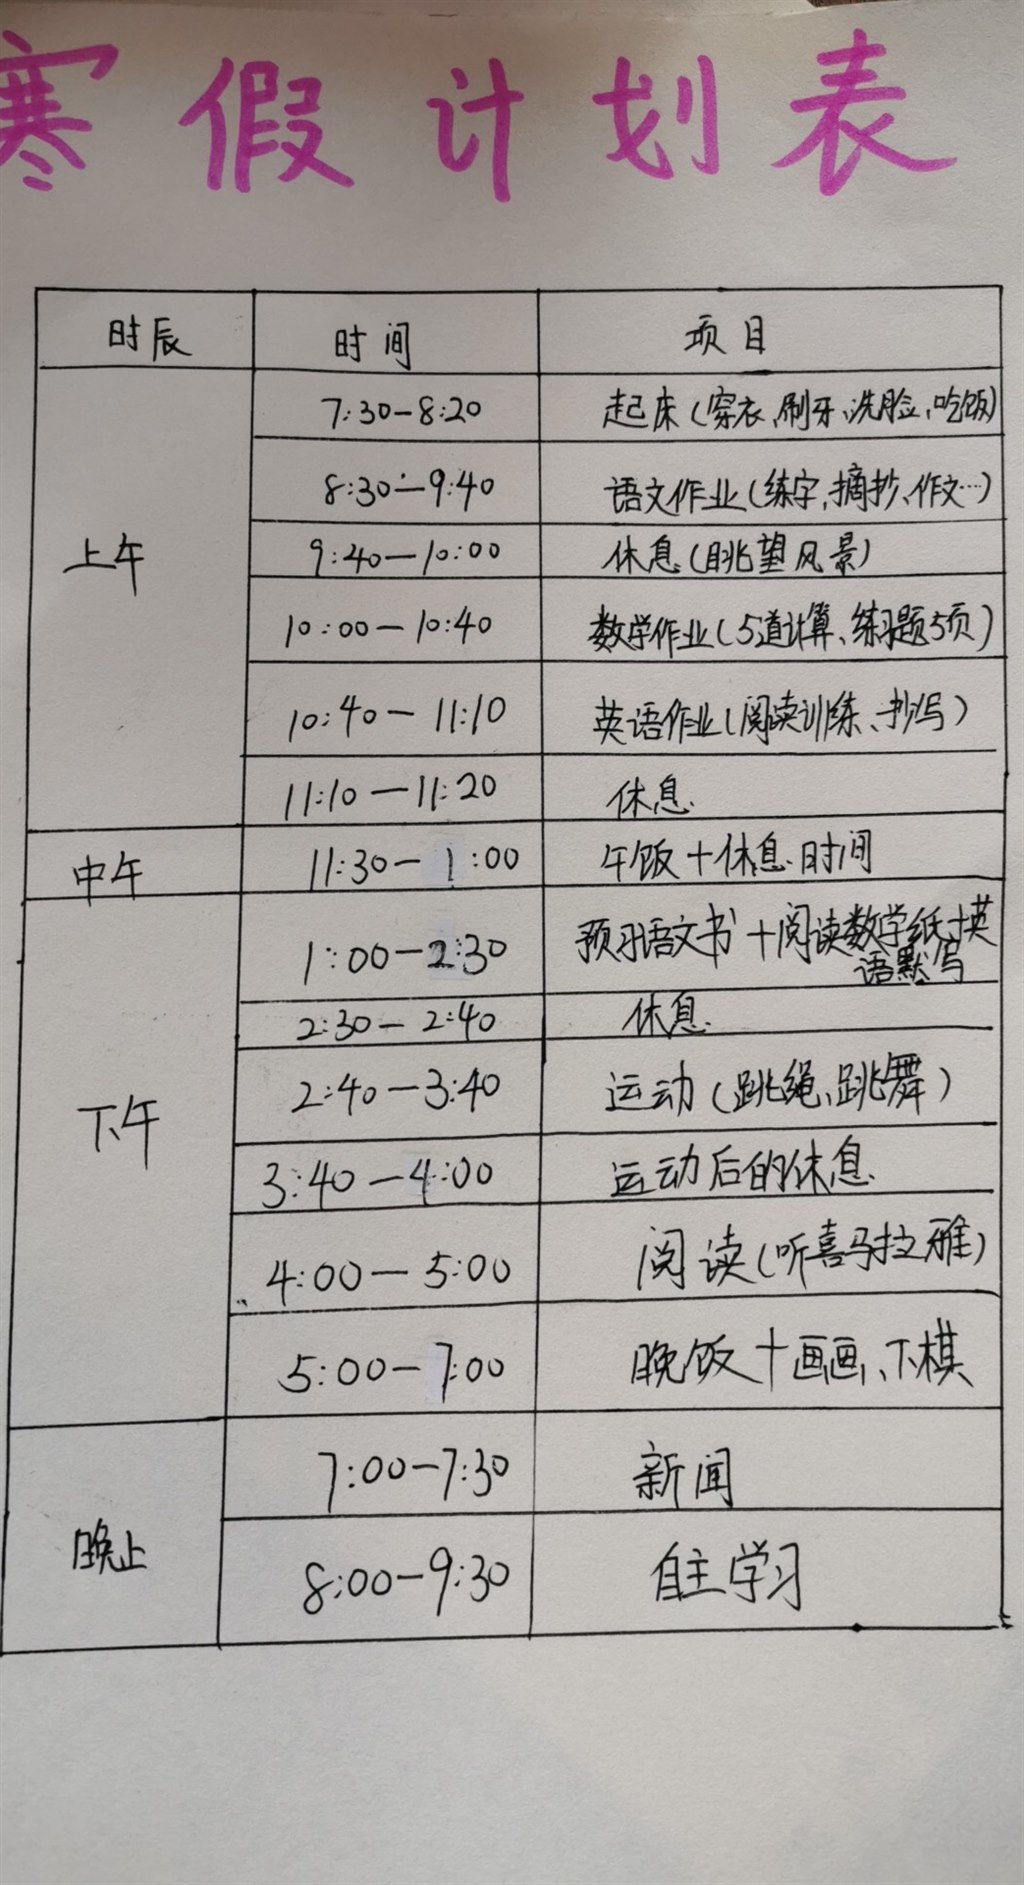 寒假计划表
时辰 时间 项目
上午 7:30—8:20 起床(穿衣、刷牙、洗脸、吃饭)
8:30—9:40 语文作业(练字、摘抄、作文…)
9:40—10:00 休息(眺望风景)
10:00—10:40 数学作业(5道计算、练习题5页)
10:40—11:10 英语作业(阅读训练、抄写)
11:10—11:20 休息
中午 11:30—1:00 午饭+休息时间
下午 1:00—2:30 预习语文书+阅读数学纸+英
语默写
2:30—2:40 休息
2:40—3:40 运动(跳绳、跳舞)
3:40—4:00 运动后的休息
4:00—5:00 阅读(听喜马拉雅)
5:00—7:00 晚饭+画画、下棋
晚上 7:00—7:30 新闻
8:00—9:30 自主学习